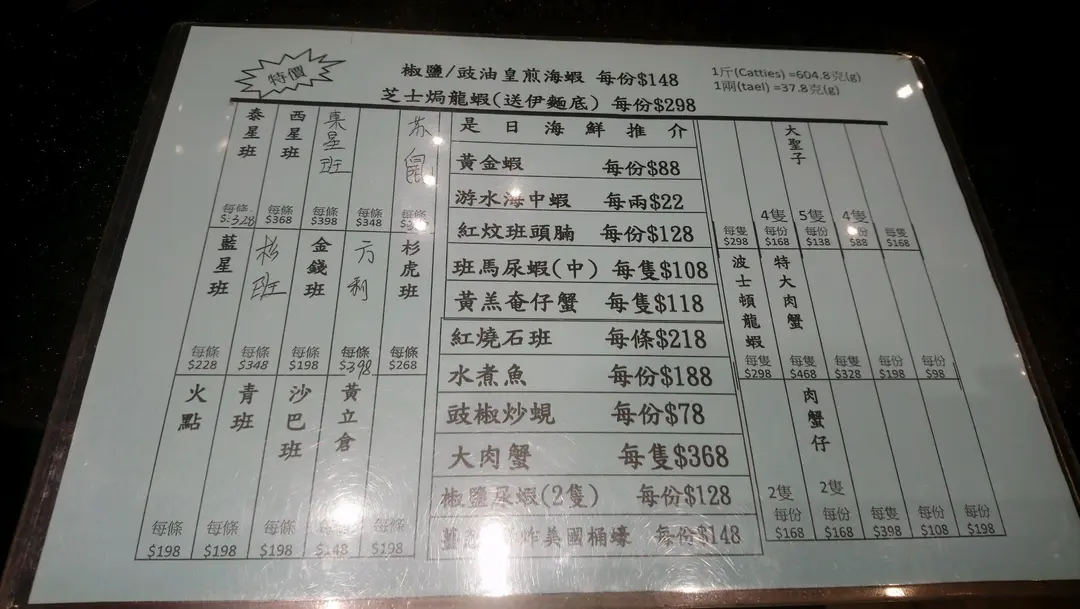 特價
椒鹽/豉油皇煎海蝦 每份$148
芝士焗龍蝦(送伊麵底) 每份$298
1斤(Catties) =604.8克(g)
1兩(tael) =37.8克(g)
泰星班 每條 $328
西星班 每條 $368
東星班 每條 $398
每條 $348
苏鼠 每條
藍星班 每條 $228
杉班 每條 $348
金錢班 每條 $198
方利 每條 $398
杉虎班 每條 $268
火點 每條 $198
青班 每條 $198
沙巴班 每條 $198
黃立倉 每條 $148
每條 $198
是日海鮮推介
黃金蝦 每份$88
游水海中蝦 每兩$22
紅炆班頭腩 每份$128
班馬尿蝦(中) 每隻$108
黃羔奄仔蟹 每隻$118
紅燒石班 每條$218
水煮魚 每份$188
豉椒炒蜆 每份$78
大肉蟹 每隻$368
椒鹽尿蝦(2隻) 每份$128
炸美國桶蠔 每份$148
每隻 $298
大聖子 4隻 每份 $168
5隻 每份 $138
4隻 每份 $88
每隻 $168
波士頓龍蝦 每隻 $298
特大肉蟹 每隻 $468
每隻 $328
每份 $198
每份 $98
2隻 每份 $168
肉蟹仔 2隻 每份 $168
每隻 $398
每份 $108
每份 $198